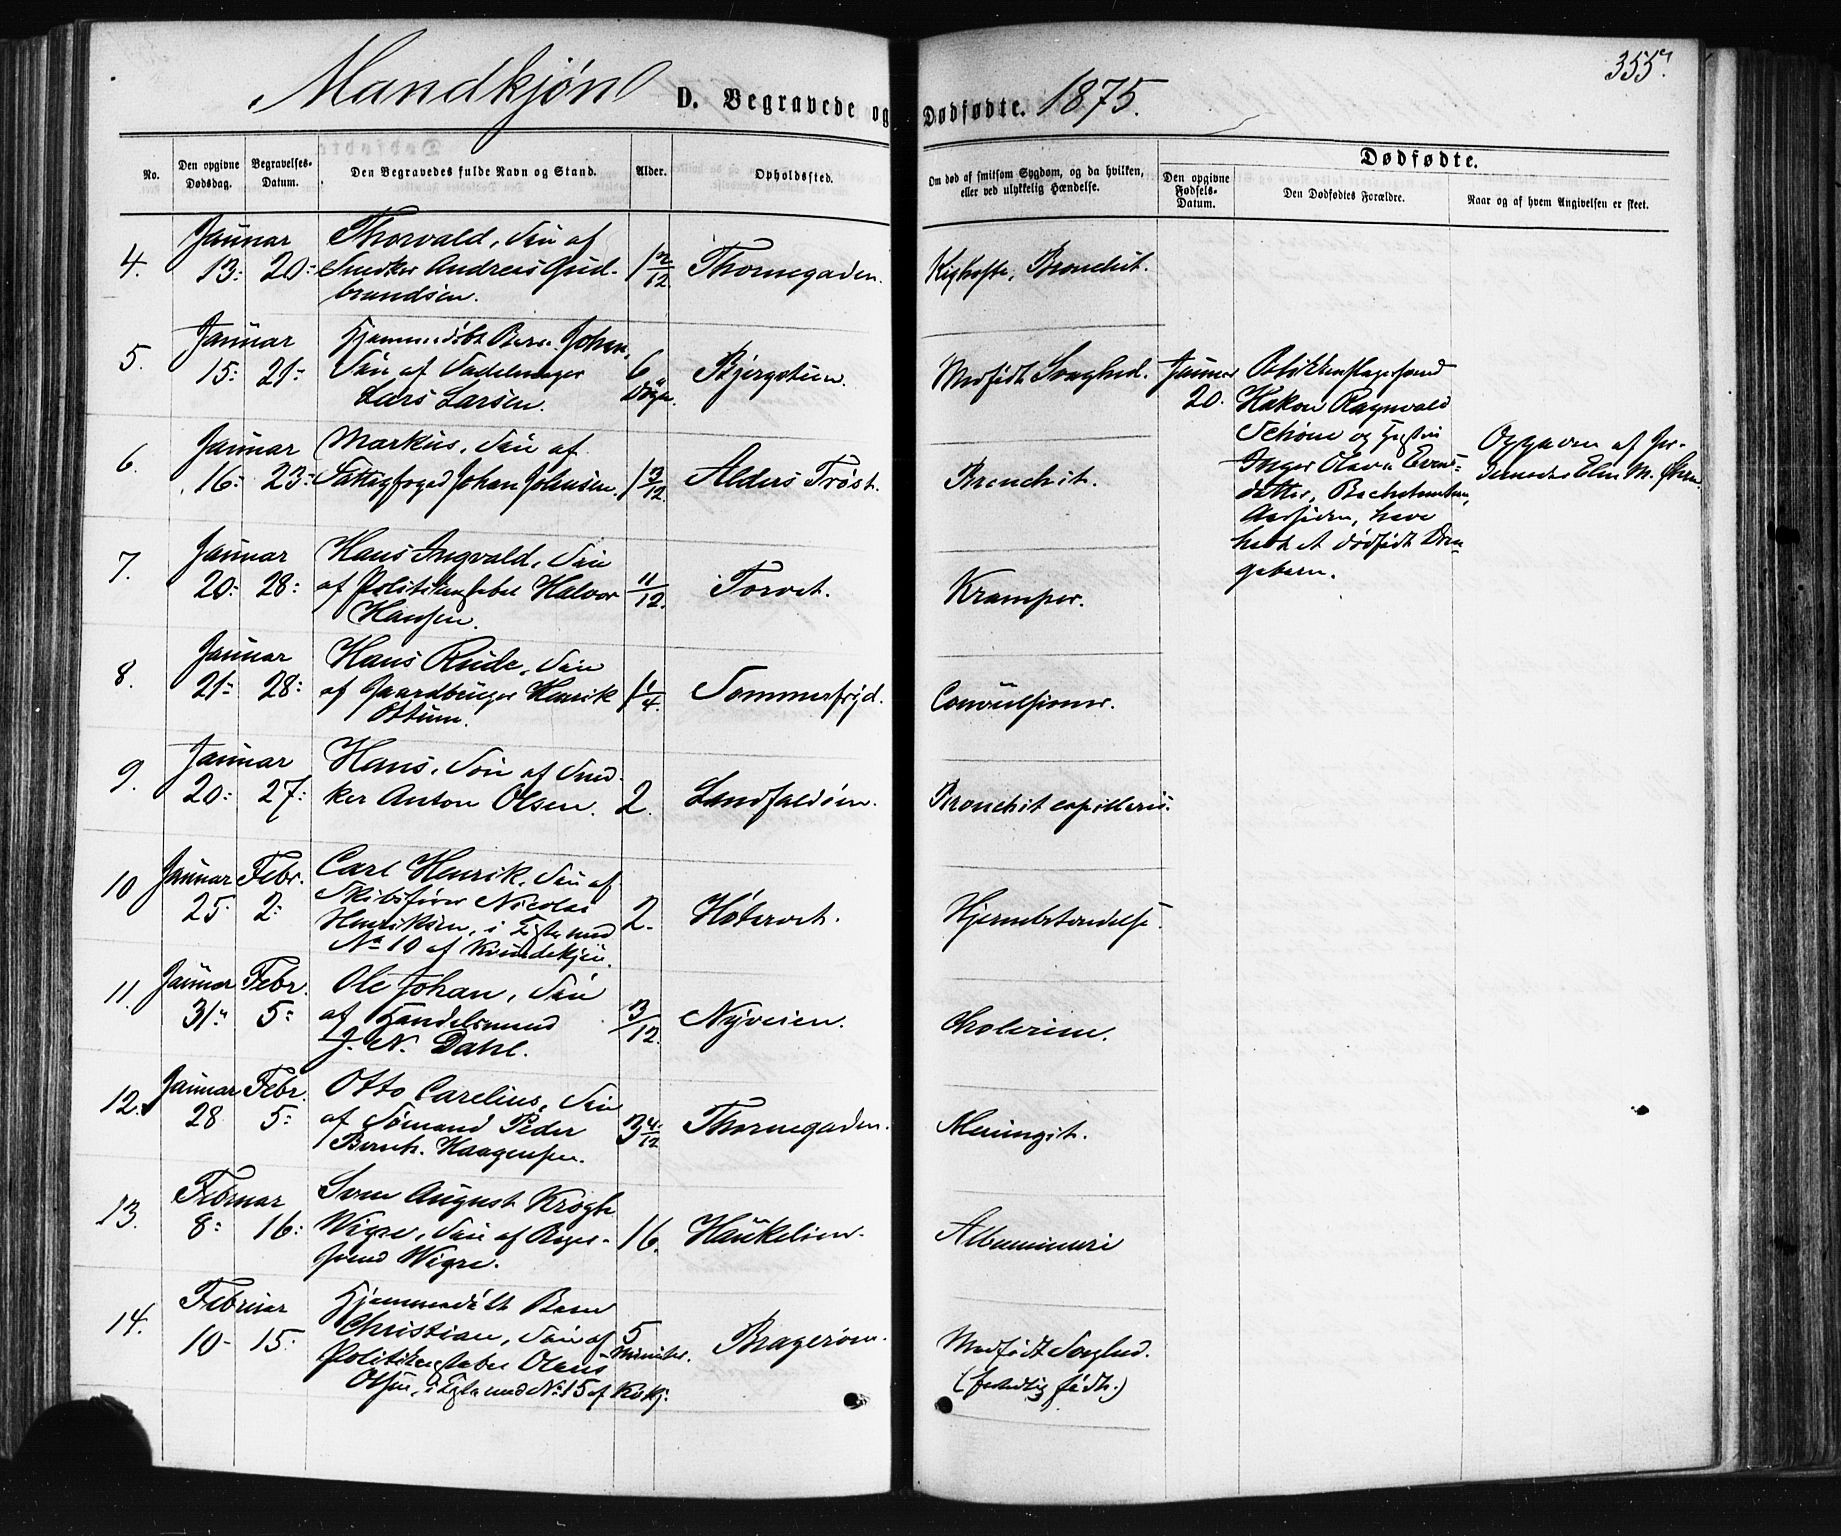 355.
Mandkjøn D. Begravede og Dødfødte. 1875.
No.
Den opgivne Dødsdag.
Begravelses-Datum.
Den Begravedes fulde Navn og Stand.
Alder.
Opholdssted.
Om død af smitsom Sygdom, og da hvilken,
eller ved ulykkelig Hændelse.
Dødfødte.
Den opgivne Fødsels-Datum.
Den Dødfødtes Forældre.
Naar og af hvem Angivelsen er skeet.
4.
Januar
13: 20:
Thorvald, Søn af
Snedker Andreas Gud-
brandsen.
1 2/12
Thornegaden.
Kighoste, Bronchit.
5.
Januar
15: 21:
Hjemmedøbt Barn Johan,
Søn af Sadelmager
Lars Larsen.
6
Døgn.
Bjergstien.
Medfødt Svaghed.
Januar
20.
Hakon Ragnvald
Schöne og Hustru
Inger Olava Evens-
datter,
have
havt et dødfødt Dren-
gebarn.
Opgaven af Jor-
demoder Elen M.
6.
Januar
16: 23:
Markus, Søn af
Fattigfoged Johan Johnsen.
1 3/12
Alders Trøst.
Bronchit.
7.
Januar
20: 28:
Hans Ingvald, Søn
af Politikonstabel Halvor
Hansen.
11/12.
Torvet.
Kramper.
8.
Januar
21: 28:
Hans Rude, Søn
af Gaardbruger Henrik
Ottum.
1 1/4.
Sommerfryd.
Convulsioner.
9.
Januar
20: 27:
Hans, Søn af Sned-
ker Anton Olsen.
2.
Landfaldøen.
Bronchit capillaris.
10
Januar Febr.
25. 2:
Carl Henrik, Søn af
Skibsfører Nicolai
Henriksen, i Kiste med
No 10 af Kvindekjøn.
2.
Høtorvet.
Hjernebetændelse.
11.
Januar Febr.
31: 5:
Ole Johan, Søn
af Handelsmand
J. N. Dahl.
3/12.
Nyveien.
Cholerine.
12.
Januar Febr.
28 5:
Otto Carelius, Søn
af Sømand Peder
Bernh. Haagensen.
3 4/12
Thornegaden.
Meningit.
13.
Februar
8: 16:
Sven August Krogh
Wigre, Søn af
Wigre.
16.
Haukelien.
Albuminuri
14.
Februar
10- 15.
Hjemmedøbt Barn
Christian, Søn af
Politikonstabel Olaus
Olsen, i Kiste med No 15 af Kvkj.
5
Minuter.
Bragerøen.
Medfødt Svaghed.
(fortidlig født.)